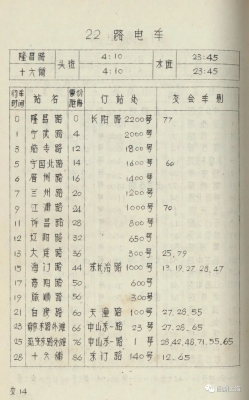 22 路电车
隆昌路 头班 4:10 末班 23:45
十六铺 4:10 23:45
行车时间 站名 票价距离 停站处 交会车别
0 隆昌路 0 长阳路 2200号 77
1 宁武路 4 2000号
3 临青路 12 1800号
5 宁国北路 14 1600号 60
6 眉州路 16 1400号
7 兰州路 20 1200号
9 江浦路 24 1000号 70
11 许昌路 28 800号
12 辽阳路 32 650号
13 大连路 36 300号 25, 79
15 海门路 44 东长治路 1000号 13, 19, 27, 28, 47
17 高阳路 50 600号
19 旅顺路 56 300号
21 60 天潼路 100号 27, 28, 55
23 66 中山东一路 23号 27, 28, 65
25 76 中山东一路 1号 28, 42, 48, 71, 55, 65
28 十六铺 86 东门路 140号 12, 65
交.14